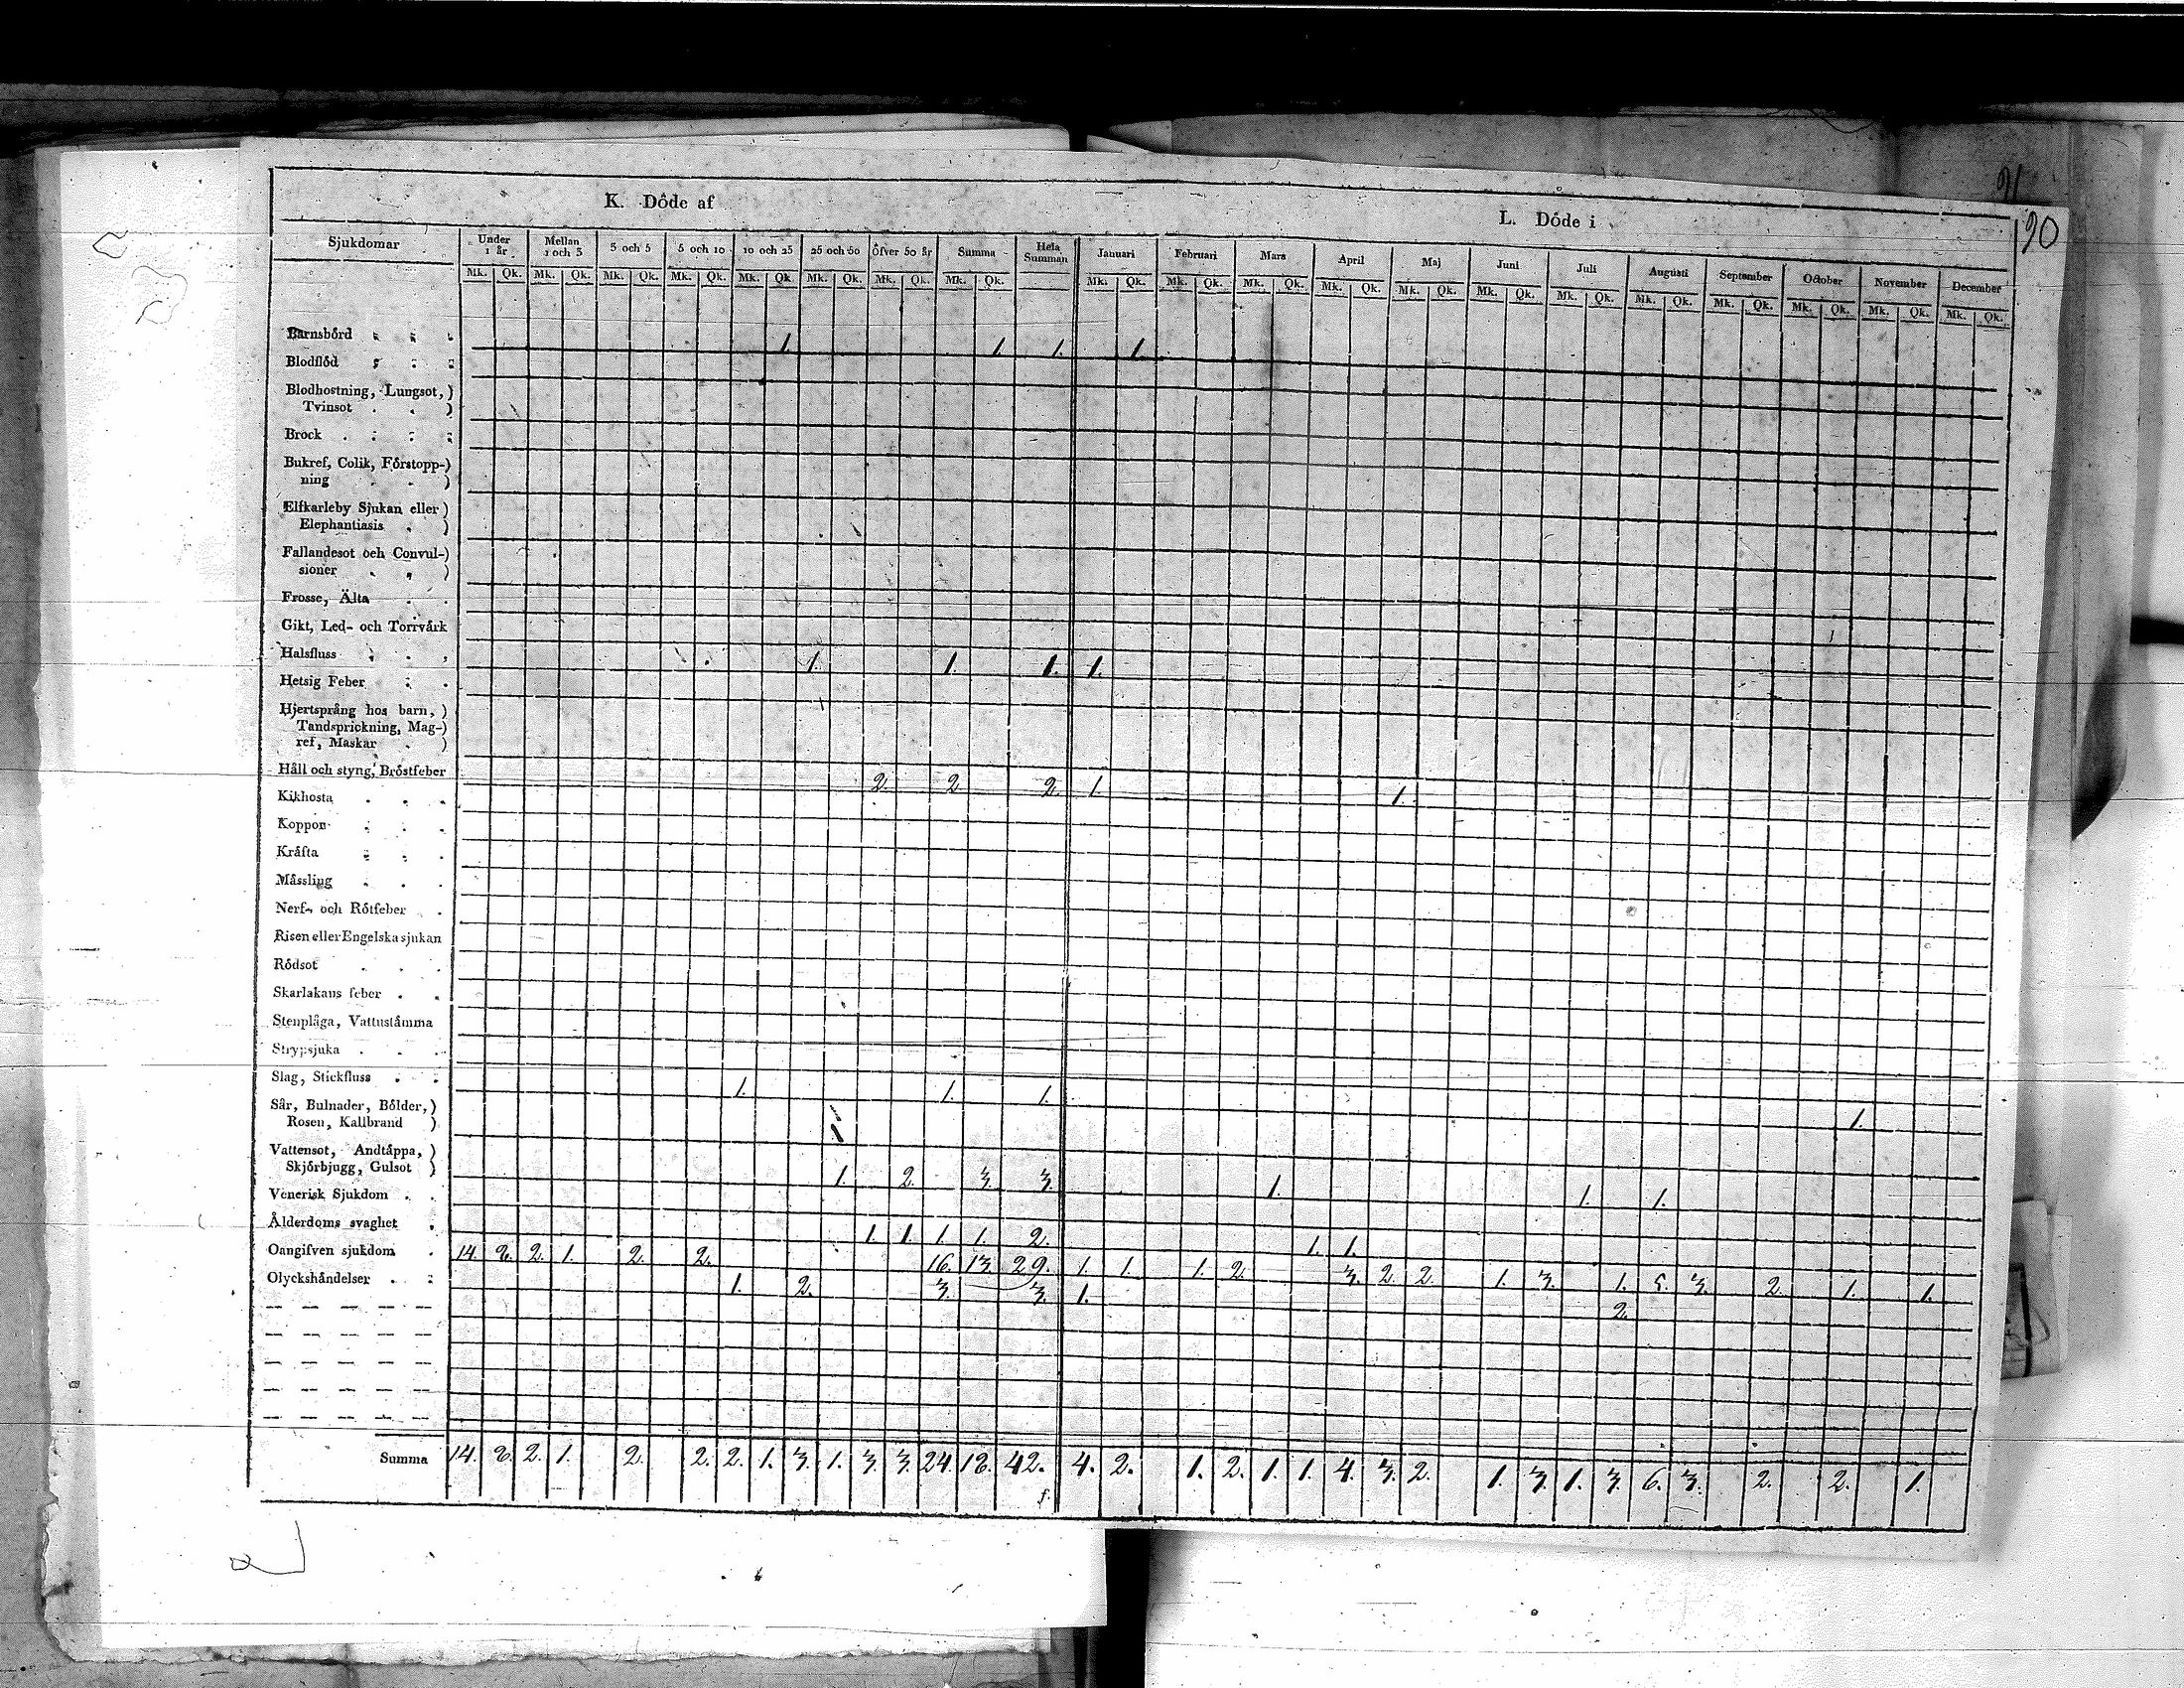 90
K. Döde af
L. Döde i
Sjukdomar Under 1 år Mellan 1 och 3 3 och 5 5 och 10 10 och 25 25 och 50 Öfver 50 år Summa Hela Summan Januari Februari Mars April Maj Juni Juli Augusti September October November December
Mk. Qk. Mk. Qk. Mk. Qk. Mk. Qk. Mk. Qk. Mk. Qk. Mk. Qk. Mk. Qk. Mk. Qk. Mk. Qk. Mk. Qk. Mk. Qk. Mk. Qk. Mk. Qk. Mk. Qk. Mk. Qk. Mk. Qk. Mk. Qk. Mk. Qk. Mk. Qk.
Barnsbörd 1. 1. 1. 1.
Blodflöd
Blodhostning, Lungsot,)
Tvinsot )
Brock
Bukref, Colik, Förstopp-)
ning )
Elfkarleby Sjukan eller)
Elephantiasis )
Fallandesot och Convul-)
sioner )
Frosse, Älta
Gikt, Led- och Torrvärk
Halsfluss 1. 1. 1. 1.
Hetsig Feber
Hjertsprång hos barn, )
Tandsprickning, Mag-)
ref, Maskar )
Håll och styng, Bröstfeber 2. 2. 2. 1. 1.
Kikhosta
Koppor
Kräfta
Mässling
Nerf- och Rötfeber
Risen eller Engelska sjukan
Rödsot
Skarlakans feber
Stenplåga, Vattustämma
Strypsjuka
Slag, Stickfluss 1. 1. 1. 1.
Sår, Bulnader, Bölder,)
Rosen, Kallbrand )
Vattensot, Andtäppa, )
Skjörbjugg, Gulsot ) 1. 2. 3. 3. 1. 1. 1.
Venerisk Sjukdom
Ålderdoms svaghet 1. 1. 1. 1. 2. 1. 1.
Oangifven sjukdom 14. 8. 2. 1. 2. 2. 16. 13. 29. 1. 1. 1. 2. 3. 2. 2. 1. 3. 1. 5. 3. 2. 1. 1.
Olyckshändelser 1. 2. 3. 3. 1. 2.
Summa 14. 8. 2. 1. 2. 2. 2. 1. 3. 1. 3. 3. 24. 18. 42. 4. 2. 1. 2. 1. 1. 4. 3. 2. 1. 3. 1. 3. 6. 3. 2. 2. 1.